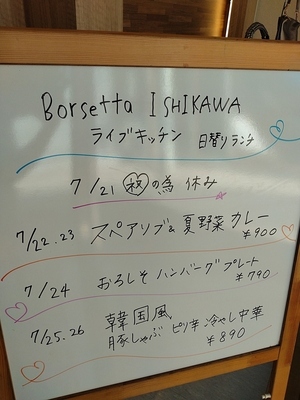 Borsetta ISHIKAWA
ライブキッチン 日替りランチ
7/21 祝の為 休み
7/22.23 スペアリブ&夏野菜カレー
¥900
7/24 おろしそハンバーグプレート
¥790
7/25.26 韓国風
豚しゃぶ ピリ辛 冷やし中華
¥890